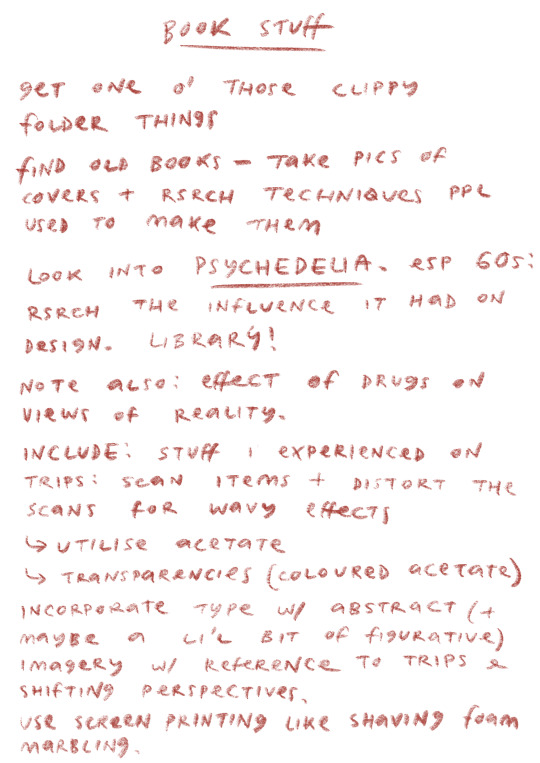 BOOK STUFF
GET ONE O' THOSE CLIPPY
FOLDER THINGS
FIND OLD BOOKS - TAKE PICS OF
COVERS + RSRCH TECHNIQUES PPL
USED TO MAKE THEM
LOOK INTO PSYCHEDELIA. ESP 60S:
RSRCH THE INFLUENCE IT HAD ON
DESIGN. LIBRARY!
NOTE ALSO: EFFECT OF DRUGS ON
VIEWS OF REALITY.
INCLUDE: STUFF I EXPERIENCED ON
TRIPS: SCAN ITEMS + DISTORT THE
SCANS FOR WAVY EFFECTS
↳ UTILISE ACETATE
↳ TRANSPARENCIES (COLOURED ACETATE)
INCORPORATE TYPE W/ ABSTRACT (+
MAYBE A LI'L BIT OF FIGURATIVE)
IMAGERY W/ REFERENCE TO TRIPS &
SHIFTING PERSPECTIVES.
USE SCREEN PRINTING LIKE SHAVING FOAM
MARBLING.